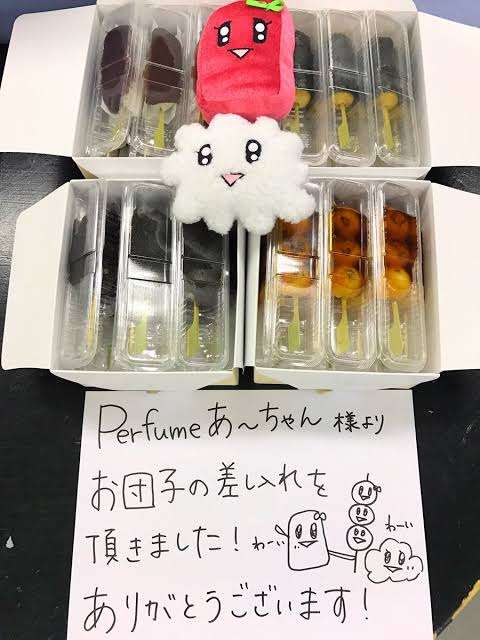 Perfume あ〜ちゃん 様より
お団子の差し入れを
頂きました！
わーい
わーい
ありがとうございます！